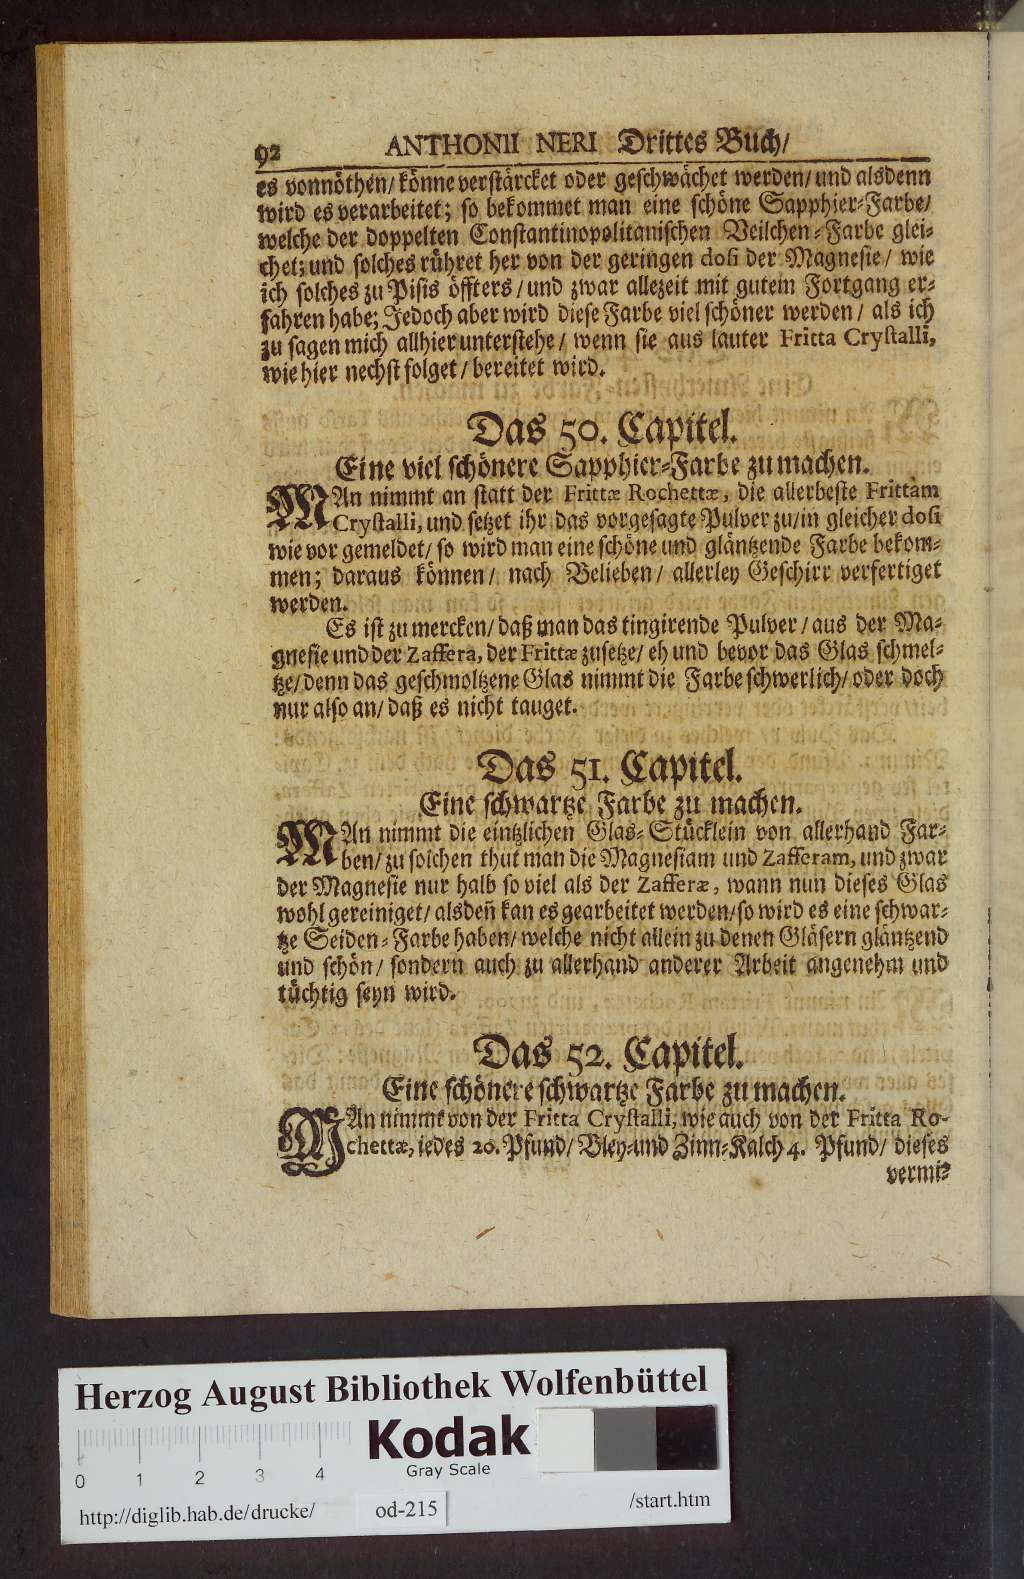 92 ANTHONII NERI Drittes Buch/
es vonnöthen/ könne verstärcket oder geschwächet werden/ und alsdenn
wird es verarbeitet; so bekommet man eine schöne Sapphier-Farbe/
welche der doppelten Constantinopolitanischen Veilchen-Farbe glei-
chet; und solches rühret her von der geringen dosi der Magnesie/ wie
ich solches zu Pisis öffters/ und zwar allezeit mit gutem Fortgang er-
fahren habe; Jedoch aber wird diese Farbe viel schöner werden/ als ich
zu sagen mich allhier unterstehe/ wenn sie aus lauter Fritta Crystalli,
wie hier nechst folget/ bereitet wird.
Das 50. Capitel.
Eine viel schönere Sapphier-Farbe zu machen.
MAn nimmt an statt der Frittæ Rochettæ, die allerbeste Frittam
Crystalli, und setzet ihr das vorgesagte Pulver zu/ in gleicher dosi
wie vor gemeldet/ so wird man eine schöne und gläntzende Farbe bekom-
men; daraus können/ nach Belieben/ allerley Geschirr verfertiget
werden.
Es ist zu mercken/ daß man das tingirende Pulver/ aus der Ma-
gnesie und der Zaffera, der Frittæ zusetze/ eh und bevor das Glas schmel-
tze/ denn das geschmoltzene Glas nimmt die Farbe schwerlich/ oder doch
nur also an/ daß es nicht tauget.
Das 51. Capitel.
Eine schwartze Farbe zu machen.
MAn nimmt die eintzlichen Glas-Stücklein von allerhand Far-
ben/ zu solchen thut man die Magnesiam und Zafferam, und zwar
der Magnesie nur halb so viel als der Zafferæ, wann nun dieses Glas
wohl gereiniget/ alsdeñ kan es gearbeitet werden/ so wird es eine schwar-
tze Seiden-Farbe haben/ welche nicht allein zu denen Gläsern gläntzend
und schön/ sondern auch zu allerhand anderer Arbeit angenehm und
tüchtig seyn wird.
Das 52. Capitel.
Eine schönere schwartze Farbe zu machen.
MAn nimmt von der Fritta Crystalli, wie auch von der Fritta Ro-
chettæ, jedes 20. Pfund/ Bley-und Zinn-Kalch 4. Pfund/ dieses
vermi-
Herzog August Bibliothek Wolfenbüttel
Kodak
Gray Scale
0 1 2 3 4
http://diglib.hab.de/drucke/ od-215 /start.htm